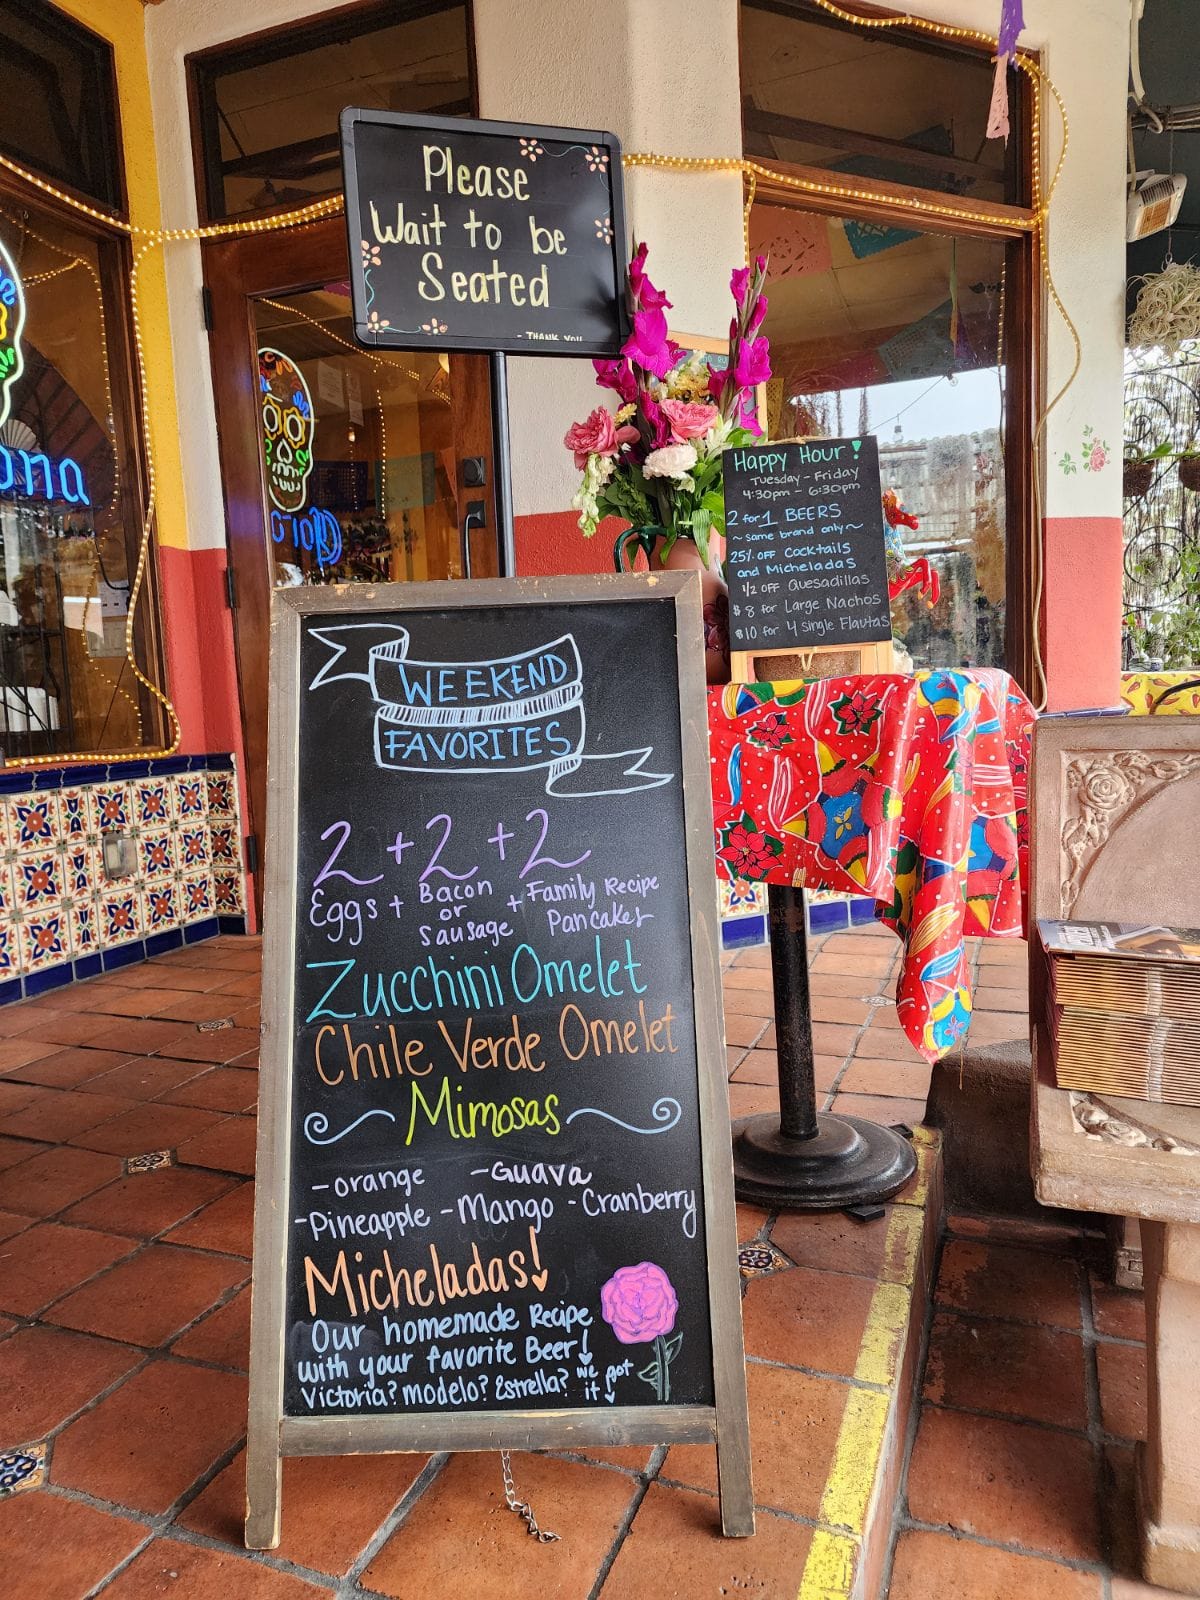 Please
Wait to be
Seated
- THANK YOU
Happy Hour!
Tuesday - Friday
4:30pm - 6:30pm
2 for 1 BEERS
~ same brand only ~
25% OFF Cocktails
and Micheladas
1/2 OFF Quesadillas
$8 for Large Nachos
$10 for 4 Single Flautas
WEEKEND
FAVORITES
2 + 2 + 2
Eggs + Bacon or Sausage + Family Recipe Pancakes
Zucchini Omelet
Chile Verde Omelet
Mimosas
-orange -Guava
-Pineapple -Mango -Cranberry
Micheladas!
Our homemade Recipe
with your favorite Beer!
Victoria? modelo? Estrella? we got it!
ona